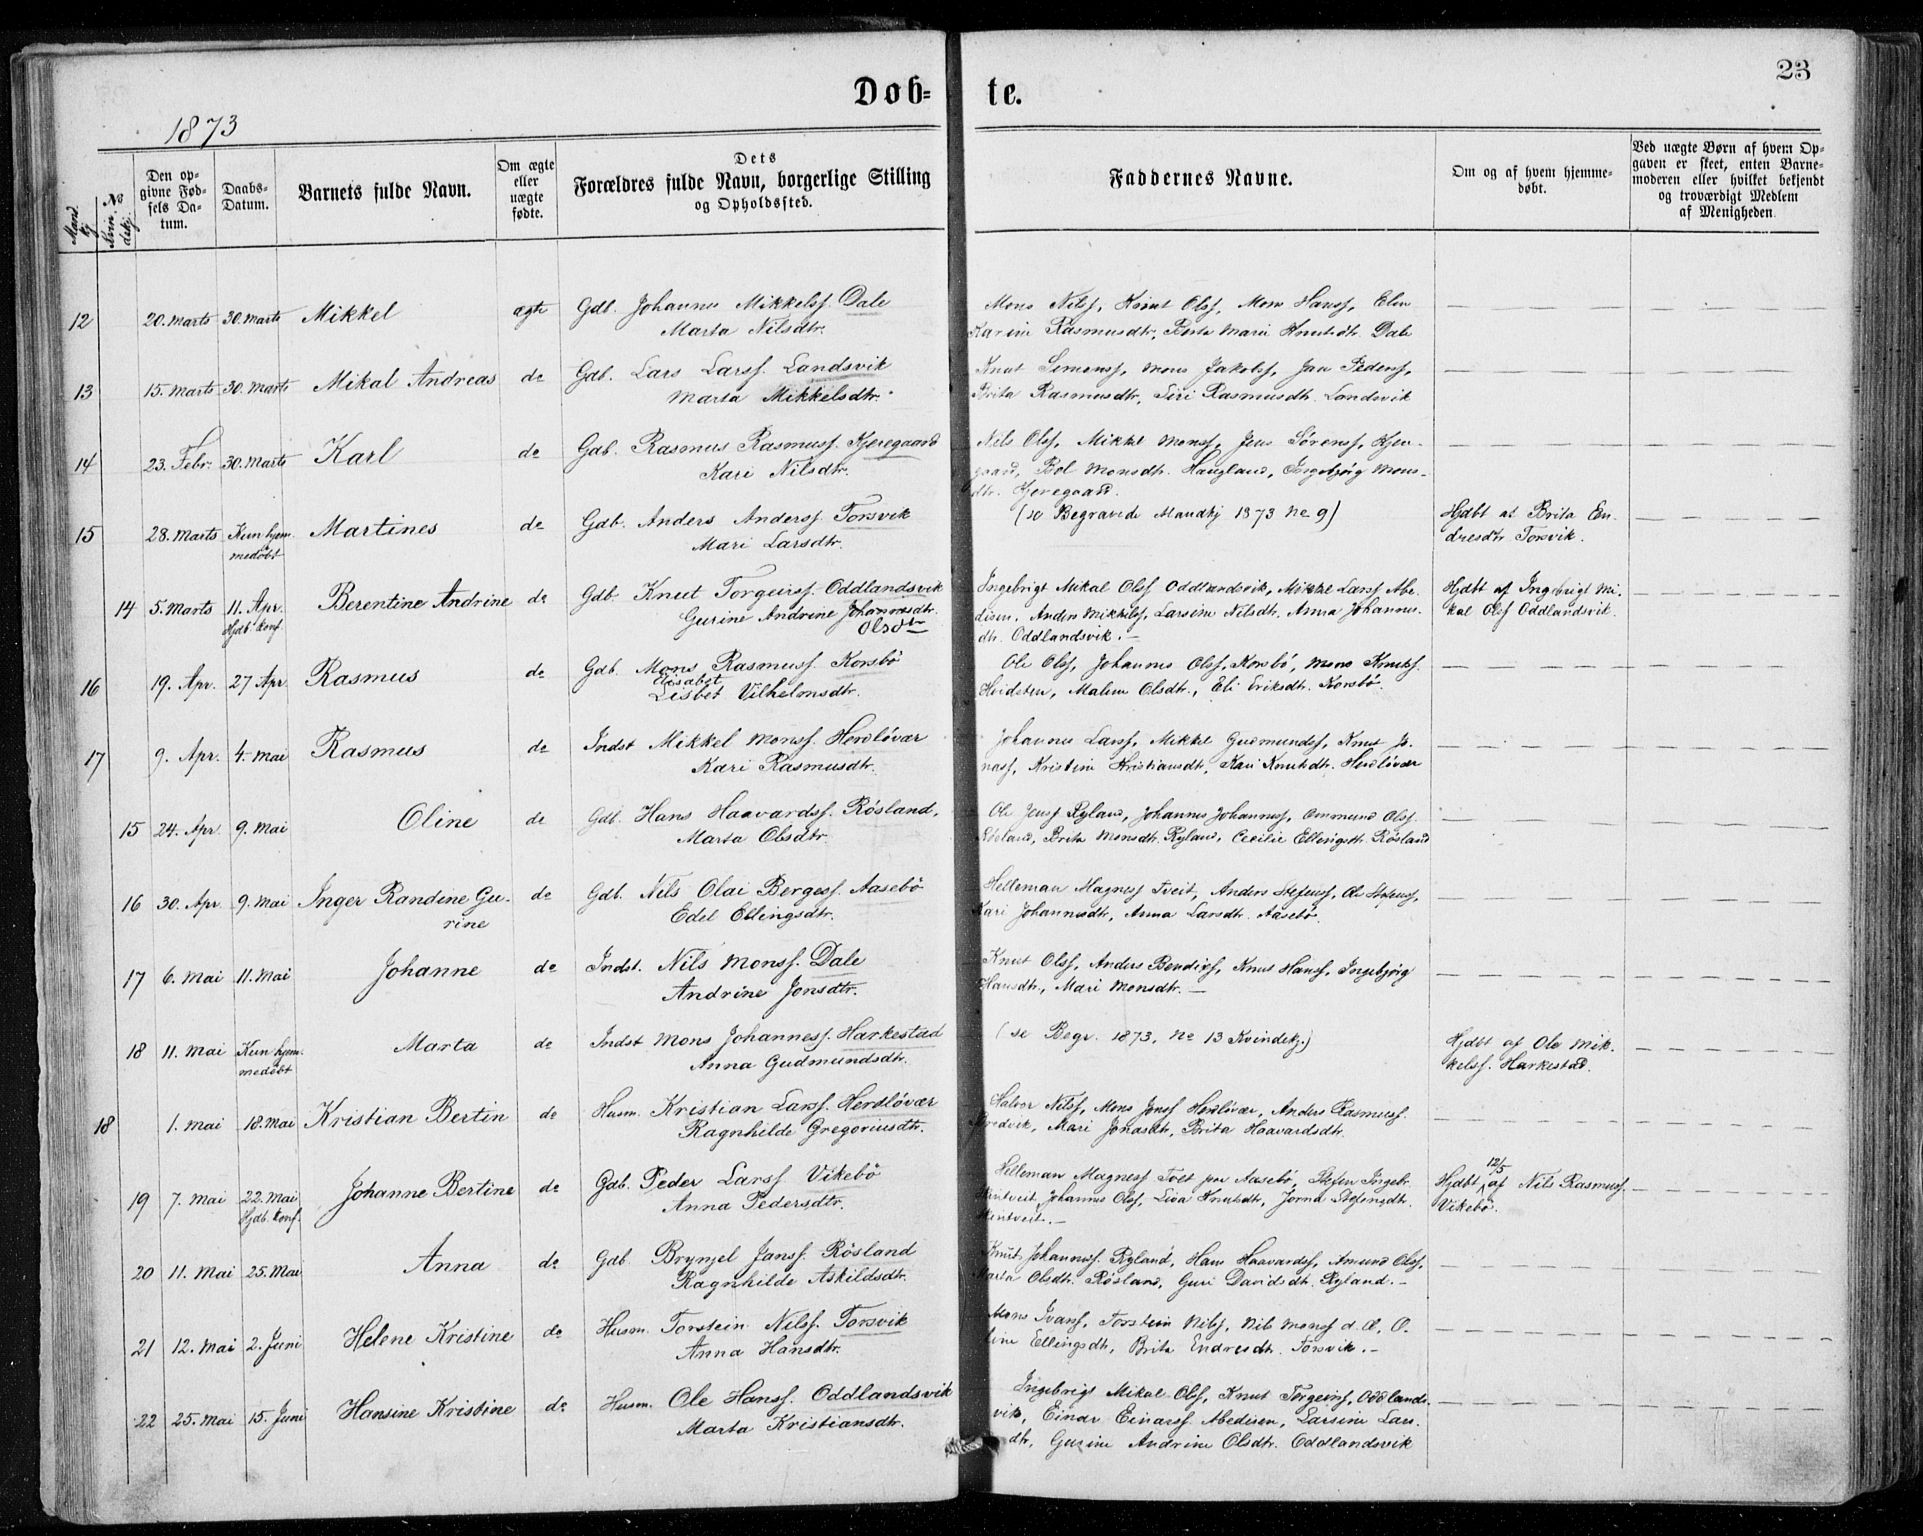 23
Døb=
te.
1873
Mand
kj
No
Kvin-
dekj.
Den op-
givne Fød-
sels Da-
tum.
Daabs-
Datum.
Barnets fulde Navn.
Om ægte
eller
uægte
fødte.
Dets
Forældres fulde Navn, borgerlige Stilling
og Opholdssted.
Faddernes Navne.
Om og af hvem hjemme-
døbt.
Ved uægte Børn af hvem Op-
gaven er skeet, enten Barne-
moderen eller hvilket bekjendt
og troværdigt Medlem
af Menigheden.
12 20. Marts 30. Marts Mikkel ægte Gdb. Johannes Mikkelsf. Dale
Marta Nilsdtr.
Mons Nilsf, Knut Olsf, Mons Hansf, Elen
Karine Rasmusdtr, Berta Marie Knutsdtr. Dale
13 15. Marts 30. Marts Mikal Andreas do Gdb. Lars Larsf. Landsvik
Marta Mikkelsdtr.
Knut Simonsf, Mons Jakobsf, Jan Pedersf,
Brita Rasmusdtr, Siri Rasmusdtr. Landsvik
14 23. Febr. 30. Marts Karl do Gdb. Rasmus Rasmusf. Kjeregaard
Kari Nilsdtr.
Nils Olsf, Mikkel Monsf, Jens Sørensf, Kjere-
gaard, Bol Monsdtr. Haugland, Ingebjørg Mons-
dtr. Kjeregaard.
15 28. Marts Kun hjem-
medøbt
Martines do Gdb. Anders Andersf. Torsvik
Mari Larsdtr.
(se Begravede Mandkj 1873 No 9)
Hjdbt af Brita En-
dresdtr Torsvik.
14 5. Marts 11. Apr.
Hjdb. konf.
Berentine Andrine do Gdb. Knut Torgeirsf. Oddlandsvik
Gurine Andrine Johannesdtr.
Olsdtr
Ingebrigt Mikal Olsf Oddlandsvik, Mikkel Larsf Abe-
disen, Anders Mikkelsf, Larsine Nilsdtr, Anna Johannes-
dtr. Oddlandsvik.
Hjdbt af Ingebrigt Mi-
kal Olsf Oddlandsvik.
16 19. Apr. 27 Apr. Rasmus do Gdb. Mons Rasmusf. Korsbø
Elisabet
Lisbet Vilhelmsdtr.
Ole Olsf, Johannes Olsf, Korsbø, Mons Knutsf.
Hvidsten, Malene Olsdtr., Eli Eriksdtr. Korsbø.
17 9. Apr. 4. Mai Rasmus do Indst Mikkel Monsf. Herdløvær
Kari Rasmusdtr.
Johannes Larsf, Mikkel Gudmundsf, Knut Jo-
nasf, Kristine Kristiansdtr, Kari Knutsdtr. Herdløvær
15 24. Apr. 9. Mai Oline do Gdb. Hans Haavardsf. Røsland,
Marta Olsdtr.
Ole Jensf Ryland, Johannes Johannesf, Ommund Olsf
Røsland, Brita Monsdtr. Ryland, Cecilie Ellingsdtr. Røsland
16 30. Apr. 9. Mai Inger Randine Gu-
rine
do Gdb. Nils Olai Bergesf. Aasebø
Edel Ellingsdtr.
Helleman Magnesf Tveit, Anders Stefensf, Ole Stefensf,
Kari Johannesdtr, Anna Larsdtr. Aasebø.
17 6. Mai 11. Mai Johanne do Indst. Nils Monsf. Dale
Andrine Jonsdtr.
Knut Olsf, Anders Bendixsf, Knut Hansf, Ingebjørg
Hansdtr, Mari Monsdtr.
18 11. Mai Kun hjem-
medøbt
Marta do Indst Mons Johannesf. Harkestad
Anna Gudmundsdtr.
(se Begr. 1873, No 13 Kvindekj.)
Hjdbt af Ole Mik-
kelsf. Harkestad.
18 1. Mai 18. Mai Kristian Bertin do Husm. Kristian Larsf. Herdløvær
Ragnhilde Gregoriusdtr.
Halvor Nilsf, Mons Jonsf Herdløvær, Anders Rasmusf.
Bredvik, Mari Jonasdtr, Brita Haavardsdtr.
19 7. Mai 22. Mai
Hjdb. konf.
Johanne Bertine do Gdb. Peder Larsf Vikebø
Anna Pedersdtr.
Helleman Magnesf Toft paa Aasebø, Stefen Ingebr.
Mjntveit, Johannes Olsf, Liva Knutsdtr, Jorna Stefensdtr.
Mjntveit.
12/5
Hjdbt af Nils Rasmusf.
Vikebø.
20 11. Mai 25. Mai Anna do Gdb. Brynjel Jansf. Røsland
Ragnhilde Askildsdtr.
Knut Johannesf. Ryland, Hans Haavardsf, Amund Olsf,
Marta Olsdtr. Røsland, Guri Davidsdtr. Ryland.
21 12. Mai 2. Juni Helene Kristine do Husm. Torstein Nilsf. Torsvik
Anna Hansdtr.
Mons Ivarsf, Torstein Nilsf, Nils Monsf d. Æ, O-
line Ellingsdtr, Brita Endresdtr. Torsvik.
22 25. Mai 15. Juni Hansine Kristine do Husm. Ole Hansf. Oddlandsvik
Marta Kristiansdtr.
Ingebrigt Mikal Olsf, Knut Torgeirsf, Oddlands-
vik, Einar Einarsf. Abedisen, Larsine Lars-
dtr, Gurine Andrine Olsdtr. Oddlandsvik